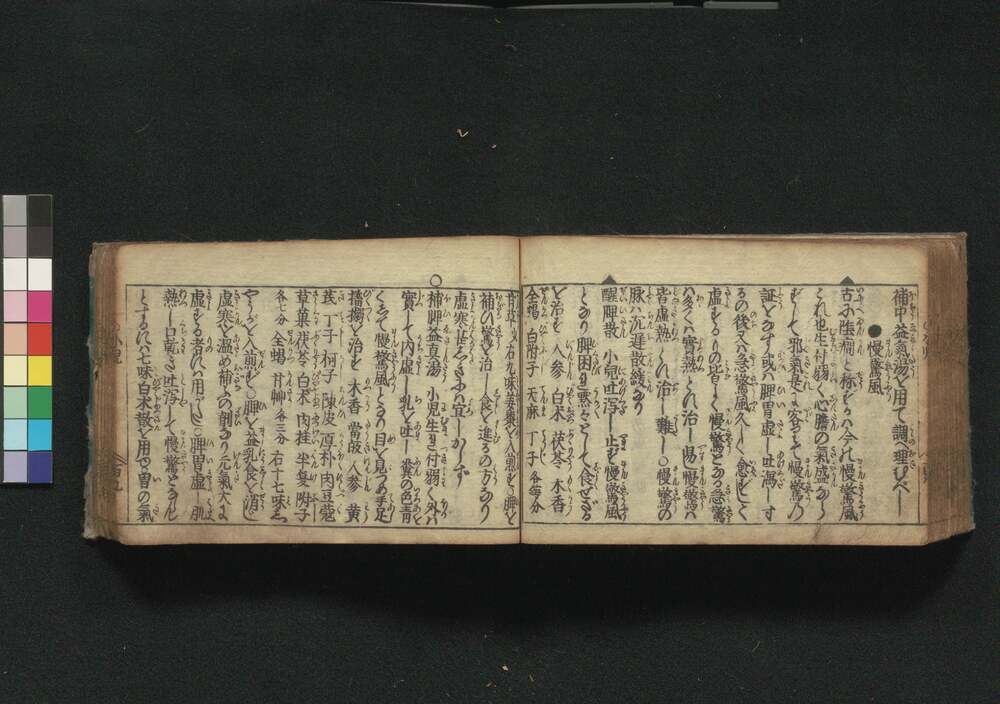 補中益氣湯を用て調理すべし
●慢驚風
古に陰癇と称するハ今これ慢驚風
これ也生付弱く心膽の氣盛なら
ずして邪氣是に客をして慢驚乃
証となす或ハ脾胃虚し吐瀉します
るの後又ハ急驚風久しく愈ずして
虚するもの皆よく慢驚となる急驚
ハ多くハ實熱これ治し易慢驚ハ
皆虚熱これ治し難し○慢驚の
脉ハ沉遅散緩なり
醒脾散 小兒吐泻し止ず慢驚風
となり脾困き黙々として食せざる
を治す 人参 白木 茯苓 木香
全蝎 白附子 天麻 丁子 各等分
右九味姜棗を入煎じ脾を
補ひ驚を治し食を進るの方なり
虚寒甚しきに宜しからず
補脾益眞湯 小兒生れ付弱く外ハ
實して内虚し乳を吐し糞の色青
くして慢驚風となり目を見つめ手足
搐搦を治す 木香 當皈 人参 黄
茋 丁子 柯子 陳皮 厚朴 肉豆蔻
草菓 茯苓 白木 肉桂 半夏 附子
各七分 全蝎 甘艸 各三分 右十七味
を入煎ず○脾を益乳食を消し
虚寒を温め補ふの剤なり元氣大に
虚する者にハ用ゆべし○脾胃虚し肌
熱し口乾き吐泻して慢驚とならん
とするにハ七味白木散を用ゆ胃の氣